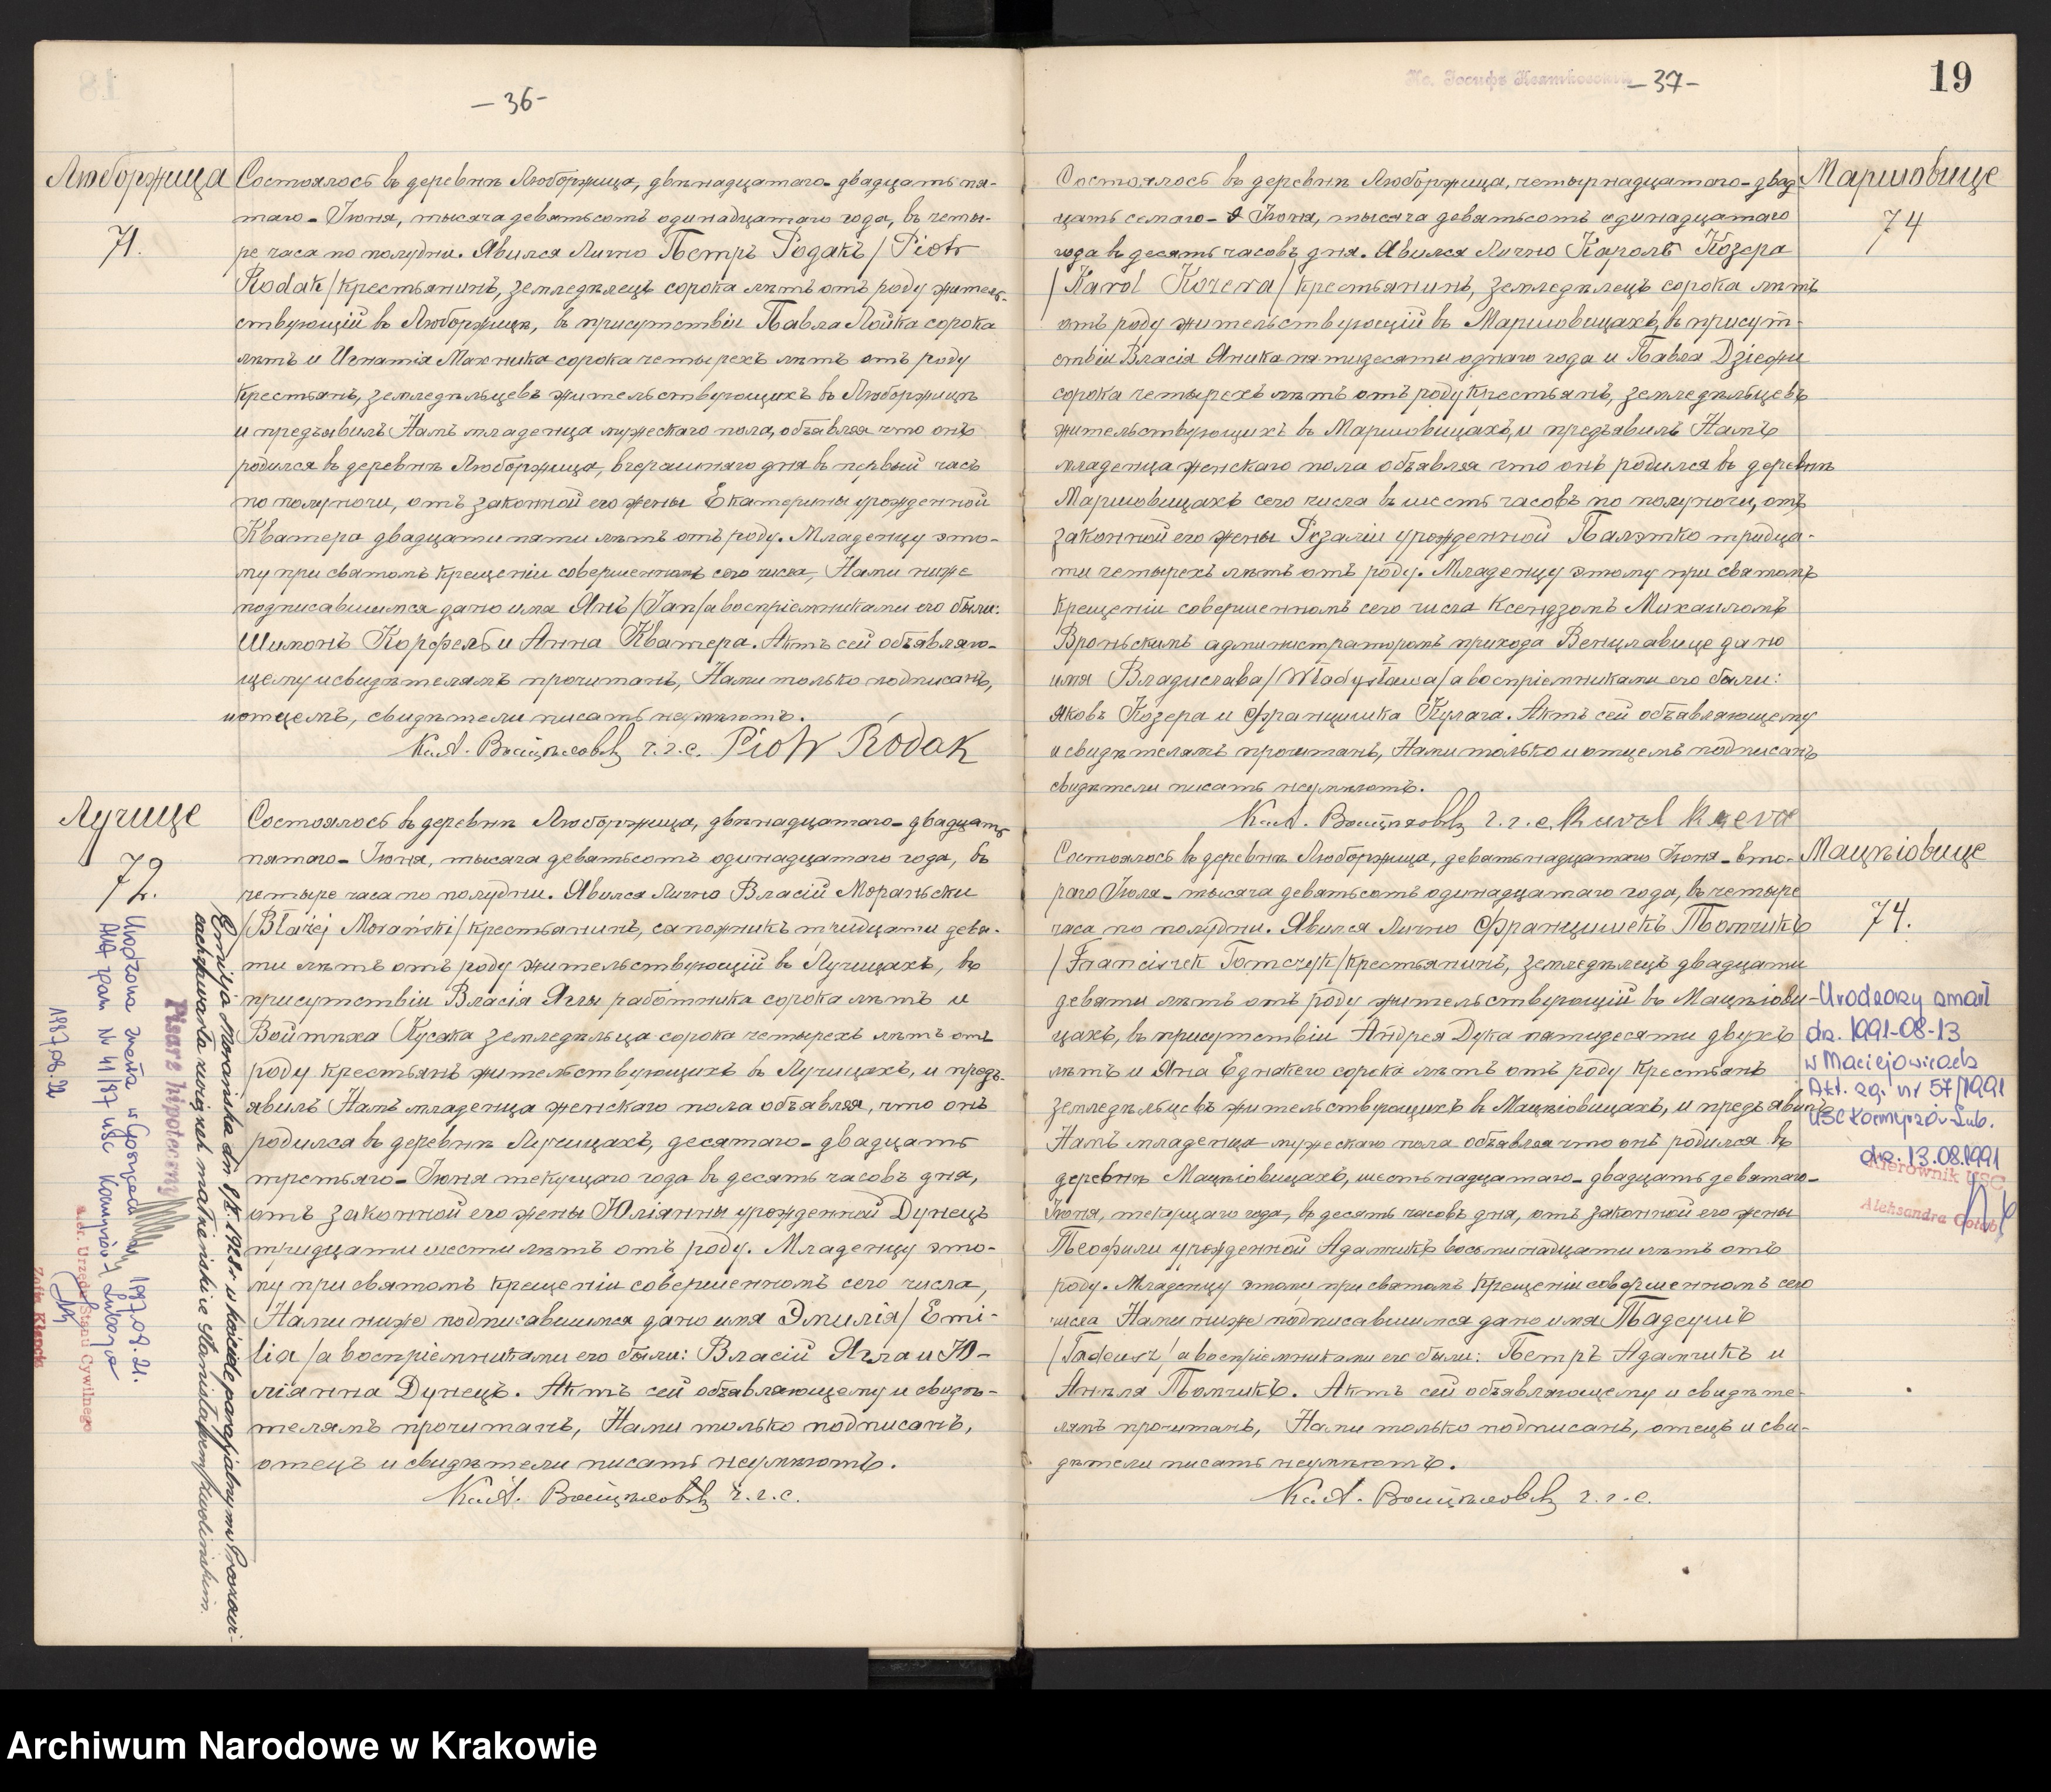 — 36 —
Люборжица
71.
Состоялось въ деревнѣ Люборжица, двѣнадцатаго - двадцать пя-
таго - Іюня, тысяча девятьсотъ одинадцатаго года, въ четы-
ре часа по полудни. Явился Лично Петръ Родакъ / Piotr
Rodak / крестьянинъ, земледѣлецъ сорока лѣтъ отъ роду житель-
ствующій въ Люборжицѣ, въ присутствіи Павла Лойка сорока
лѣтъ и Игнатія Махника сорока четырехъ лѣтъ отъ роду
крестьянъ, земледѣльцевъ жительствующихъ въ Люборжицѣ
и предъявилъ Намъ младенца мужескаго пола, объявляя что онъ
родился въ деревнѣ Люборжица, вчерашняго дня въ первый часъ
по полуночи, отъ законной его жены Екатерины урожденной
Кватера двадцати пяти лѣтъ отъ роду. Младенцу это-
му при святомъ крещеніи совершенномъ сего числа, Нами ниже
подписавшимся дано имя Янъ / Jan / а воспріемниками его были:
Шимонъ Корфель и Анна Кватера. Актъ сей объявляю-
щему и свидѣтелямъ прочитанъ, Нами только подписанъ,
и отцемъ, свидѣтели писать неумѣютъ.
ч.г.с. Piotr Rodak
Лучице
72.
Состоялось въ деревнѣ Люборжица, двѣнадцатаго - двадцать
пятаго - Іюня, тысяча девятьсотъ одинадцатаго года, въ
четыре часа по полудни. Явился Лично Власій Мораньски
/ Błażej Morański / крестьянинъ, сапожникъ тридцати девя-
ти лѣтъ отъ роду жительствующій въ Лучицахъ, въ
присутствіи Власія Яглы работника сорока лѣтъ и
Войтѣха Кусяка земледѣльца сорока четырехъ лѣтъ отъ
роду крестьянъ жительствующихъ въ Лучицахъ, и предъ-
явилъ Намъ младенца женскаго пола объявляя, что онъ
родился въ деревнѣ Лучицахъ, десятаго - двадцать
третьяго - Іюня текущаго года въ десять часовъ дня,
отъ законной его жены Юліянны урожденной Дунецъ
тридцати шести лѣтъ отъ роду. Младенцу это-
му при святомъ крещеніи совершенномъ сего числа,
Нами ниже подписавшимся дано имя Эмилія / Emi-
lia / а воспріемниками его были: Власій Ягла и Ю-
ліянна Дунецъ. Актъ сей объявляющему и свидѣ-
телямъ прочитанъ, Нами только подписанъ,
отецъ и свидѣтели писать неумѣютъ.
ч.г.с.
Emilja Morańska dn 8/IX 1928r. w kościele parafjalnym w Prandowi-
cach zawarła związek małżeński ze Stanisławem
Pisarz hipoteczny
Urodzona zmarła w
Akt zgon Nr 41/87 USC Kocmyrzów Luborzyca
1987.08.21.
1987.08.21
Urzędu Stanu Cywilnego
Zofia
— 37 —
19
Маршовице
74
Состоялось въ деревнѣ Люборжица, четырнадцатаго - двад-
цать семаго - Іюня, тысяча девятьсотъ одинадцатаго
года въ десять часовъ дня. Явился Лично Кароль Козера
/ Karol Kozera / крестьянинъ, земледѣлецъ сорока лѣтъ
отъ роду жительствующій въ Маршовицахъ, въ присут-
ствіи Власія Яника пятидесяти одного года и Павла Дзіежи
сорока четырехъ лѣтъ отъ роду крестьянъ, земледѣльцевъ
жительствующихъ въ Маршовицахъ, и предъявилъ Намъ
младенца женскаго пола объявляя что онъ родился въ деревнѣ
Маршовицахъ сего числа въ шесть часовъ по полуночи, отъ
законной его жены Розаліи урожденной Палэтко тридца-
ти четырехъ лѣтъ отъ роду. Младенцу этому при святомъ
крещеніи совершенномъ сего числа Ксендзомъ Михаиломъ
Вроньскимъ администраторомъ прихода Венцлавице дано
имя Владислава / Władysława / а воспріемниками его были:
Яковъ Козера и Францишка Кулага. Актъ сей объявляющему
и свидѣтелямъ прочитанъ, Нами только и отцемъ подписанъ
свидѣтели писать неумѣютъ.
ч.г.с.
Мацѣіовице
74.
Состоялось въ деревнѣ Люборжица, девятьнадцатаго Іюня - вто-
раго Іюля - тысяча девятьсотъ одинадцатаго года, въ четыре
часа по полудни. Явился Лично Францишекъ Томчикъ
/ Franciszek Tomczyk / крестьянинъ, земледѣлецъ двадцати
девяти лѣтъ отъ роду жительствующій въ Мацѣіови-
цахъ, въ присутствіи Андрея Дука пятидесяти двухъ
лѣтъ и Яна Еднакего сорока лѣтъ отъ роду крестьянъ
земледѣльцевъ жительствующихъ въ Мацѣіовицахъ, и предъявилъ
Намъ младенца мужескаго пола объявляя что онъ родился въ
деревнѣ Мацѣіовицахъ, шестьнадцатаго - двадцать девятаго -
Іюня, текущаго года, въ десять часовъ дня, отъ законной его жены
Теофили урожденной Адамчикъ восьминадцати лѣтъ отъ
роду. Младенцу этому при святомъ крещеніи совершенномъ сего
числа Нами ниже подписавшимся дано имя Тадеушъ
/ Tadeusz / а воспріемниками его были: Петръ Адамчикъ и
Анѣля Томчикъ. Актъ сей объявляющему и свидѣте-
лямъ прочитанъ, Нами только подписанъ, отецъ и сви-
дѣтели писать неумѣютъ.
ч.г.с.
Urodzony zmarł
dn. 1991-08-13
w Maciejowicach
Akt. zg. nr 57/1991
USC Kocmyrzów-Lub.
dn. 13.08.1991
Kierownik USC
Aleksandra Gołąb
Archiwum Narodowe w Krakowie